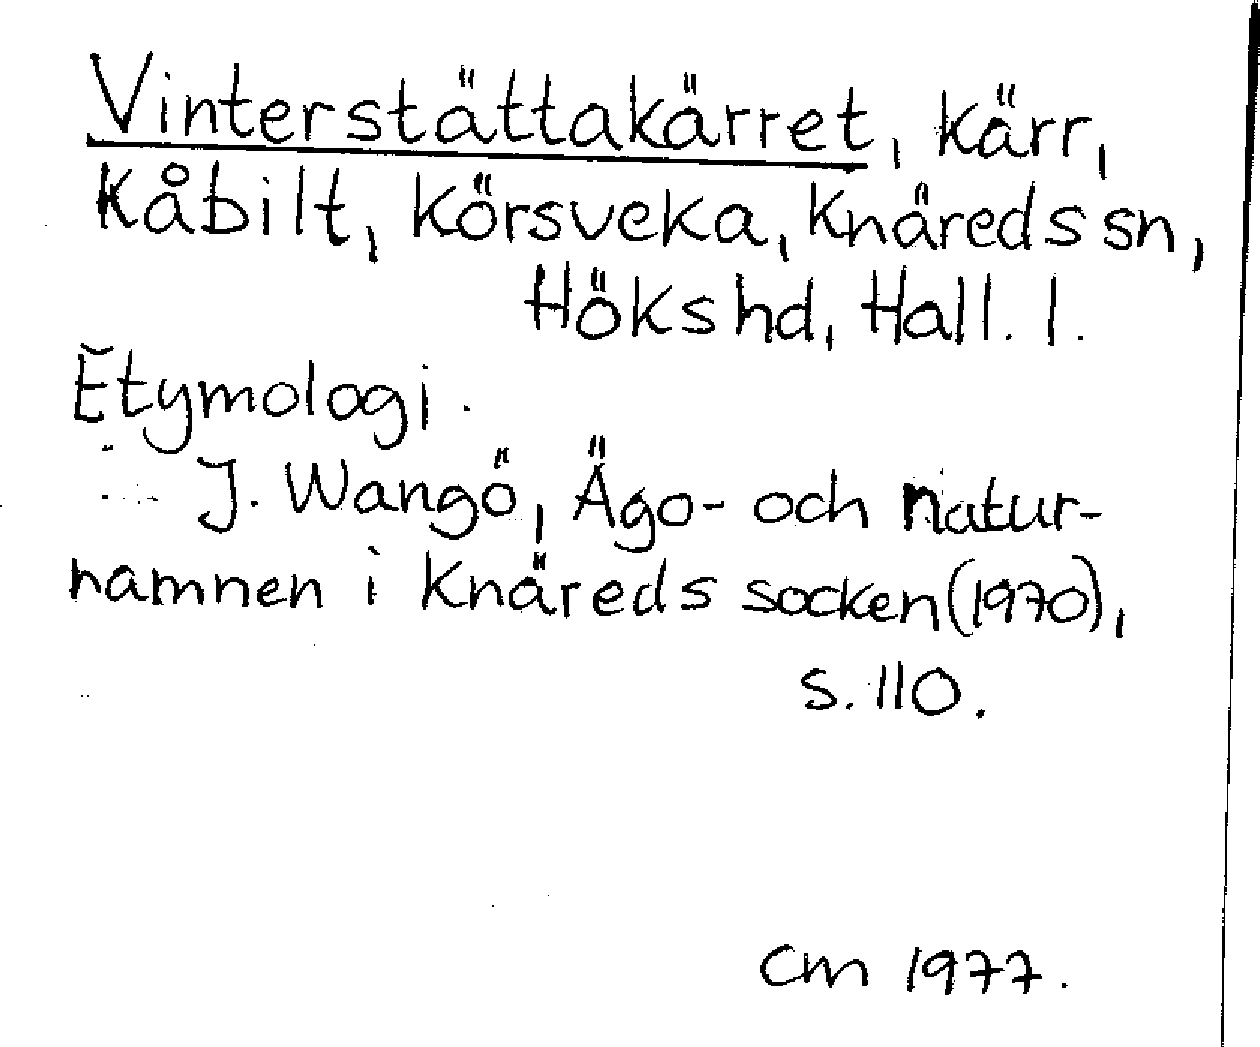 Vinterstättakärret, kärr,
Kåbilt, Körsveka, Knäreds sn,
Höks hd, Hall. l.
Etymologi.
J. Wangö, Ägo- och natur-
namnen i Knäreds socken (1970),
s. 110.
Cm 1977.